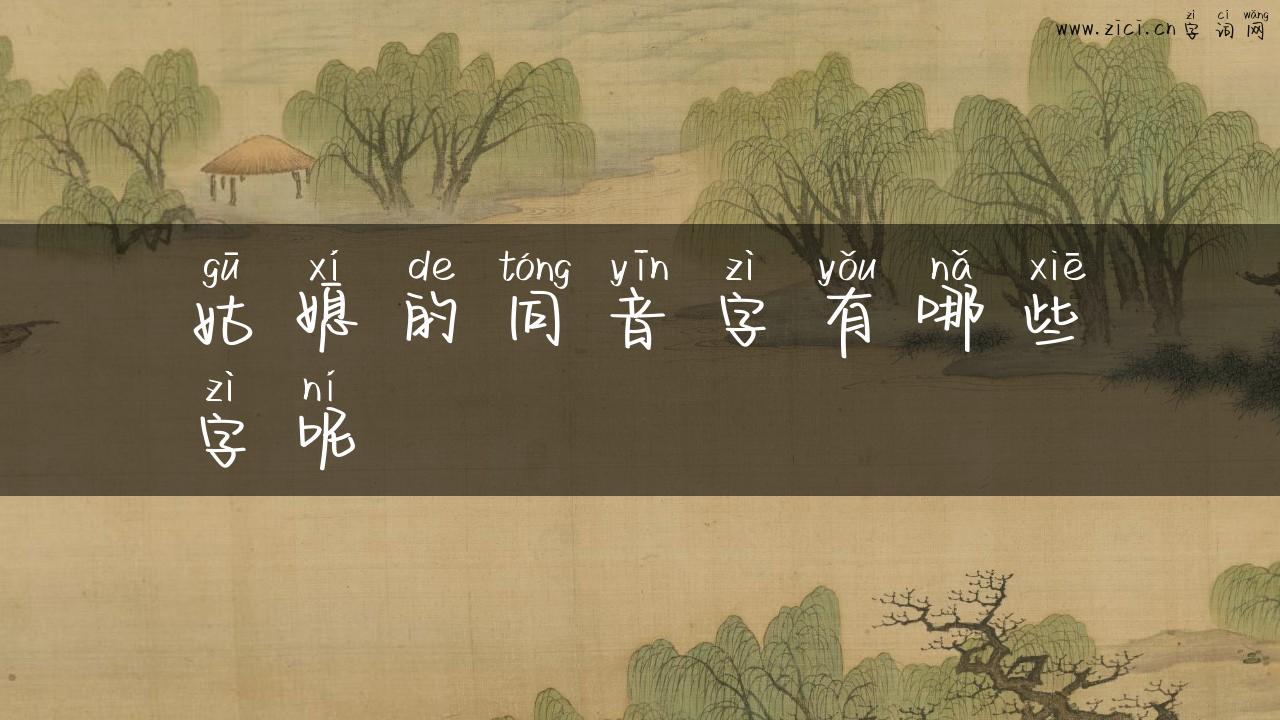 zì cí wǎng
www.zici.cn 字 词 网
gū xí de tóng yīn zì yǒu nǎ xiē
姑 媳 的 同 音 字 有 哪 些
zì ní
字 呢